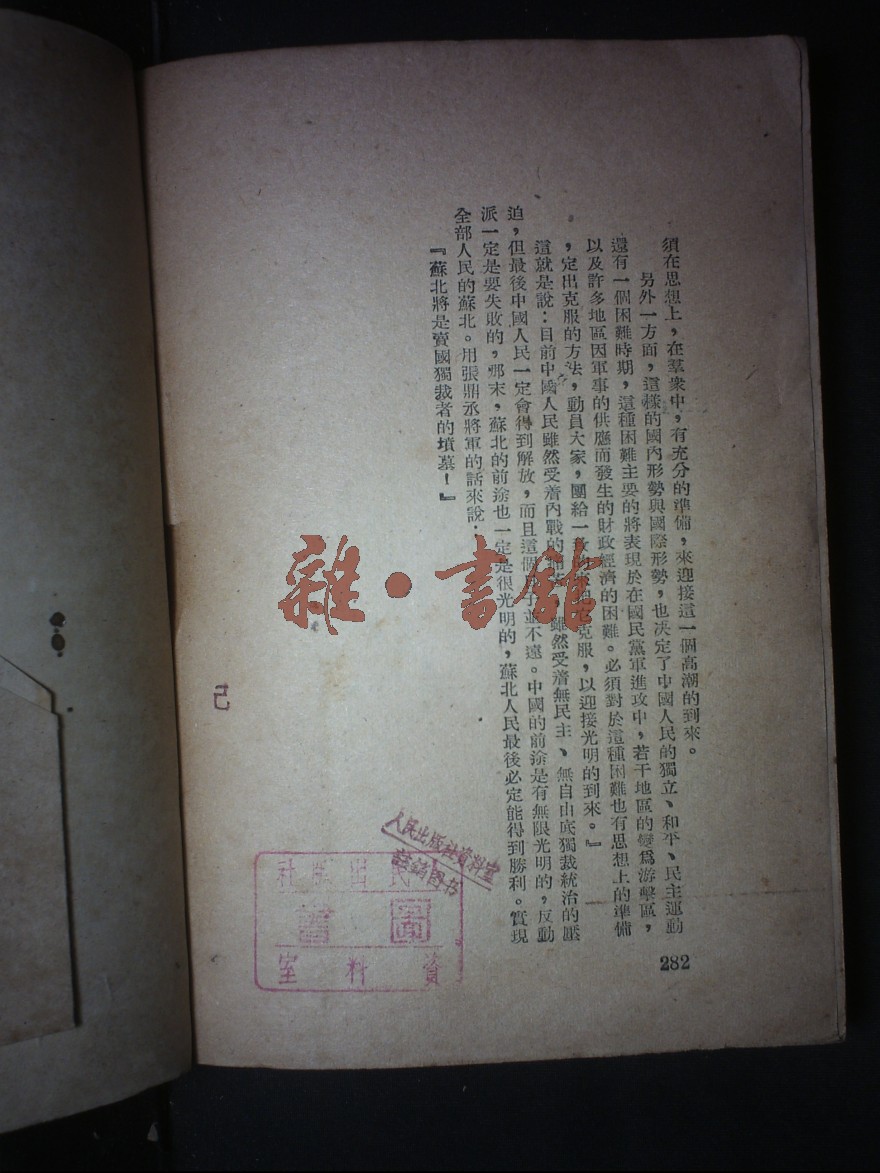 須在思想上，在羣衆中，有充分的準備，來迎接這一個高潮的到來。
另外一方面，這樣的國內形勢與國際形勢，也决定了中國人民的獨立、和平、民主運動
還有一個困難時期，這種困難主要的將表現於在國民黨軍進攻中，若干地區的變爲游擊區，
以及許多地區因軍事的供應而發生的財政經濟的困難。必須對於這種困難也有思想上的準備
，定出克服的方法，動員大家，團給一克服，以迎接光明的到來。』
這就是說：目前中國人民雖然受着內戰的雖然受着無民主、無自由底獨裁統治的壓
迫，但最後中國人民一定會得到解放，而且這個並不遠。中國的前途是有無限光明的，反動
派一定是要失敗的，那末，蘇北的前途也一定是很光明的，蘇北人民最後必定能得到勝利。實現
全部人民的蘇北。用張鼎丞將軍的話來說：
『蘇北將是賣國獨裁者的墳墓！』
282
雜·書館
己
人民出版社資料室
註銷图书
民出版社
圖書
資料室